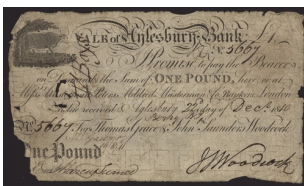 VALE of Aylesbury Bank. £1
N. 5667
I Promise to pay the Bearer
on Demand the Sum of ONE POUND, here, or at
Bankers London
Value received Aylesbury day of Dec. 1810
No. 5667 For Thomas Grace & John Saunders Woodcock
One Pound
J S Woodcock